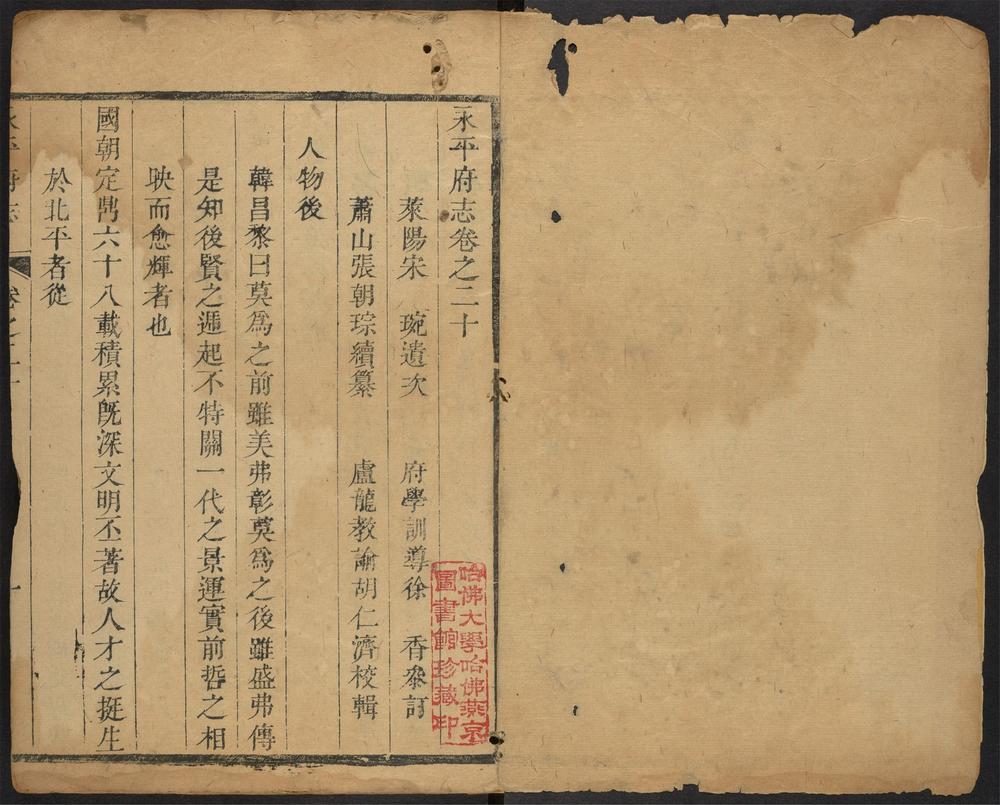 永平府志卷之二十
萊陽宋　琬遺次　府學訓導徐　香叅訂
蕭山張朝琮續纂　盧龍教諭胡仁濟校輯
人物後
韓昌黎曰莫爲之前雖美弗彰莫爲之後雖盛弗傳
是知後賢之遞起不特關一代之景運實前哲之相
映而愈輝者也
國朝定鼎六十八載積累旣深文明丕著故人才之挺生
於北平者從
永平府志　卷之二十　一
哈佛大學哈佛燕京
圖書館珍藏印